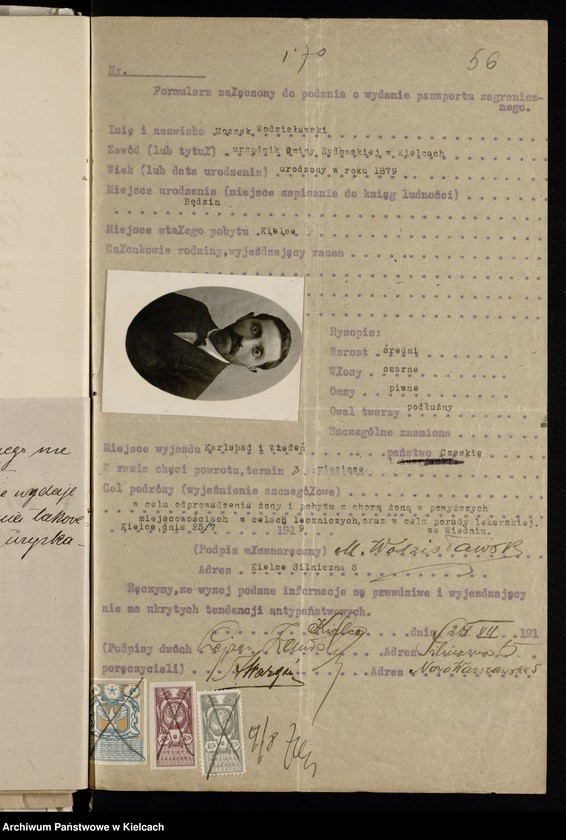 1170 56
Nr.
Formularz załączony do podania o wydanie paszportu zagranicz-
nego.
Imię i nazwisko Moszek Wodzisławski
Zawód (lub tytuł) urzędnik Gminy Żydowskiej w Kielcach
Wiek (lub data urodzenia) urodzony w roku 1879
Miejsce urodzenia (miejsce zapisania do ksiąg ludności)
Będzin
Miejsce stałego pobytu Kielce
Członkowie rodziny, wyjeżdzający razem
Rysopis:
Wzrost średni
Włosy czarne
Oczy piwne
Owal twarzy podłużny
Szczególne znamiona
Miejsce wyjazdu Karlsbad i Wiedeń państwo Czeskie
i
W razie chęci powrotu, termin 3 miesiące
Cel podróży (wyjaśnienie szczegółowe)
w celu odprowadzenia żony i pobytu z chorą żoną w powyższych
miejscowościach w celach leczniczych, oraz w celu porady lekarskiej.
Kielce dnia 25/7 1919 we Wiedniu.
(Podpis własnoręczny) M. Wodzisławski
Adres Kielce Silniczna 5
Ręczymy, że wyzej podane informacje są prawdziwe i wyjezdzający
nie ma ukrytych tendencji antypaństwowych.
Kielce dnia 26 VII 191
(Podpisy dwóch Adres Silniczna 5.
poręczycieli) Adres Nowo Warszawska 5
9/8
ego nie
e wydaje
Archiwum Państwowe w Kielcach